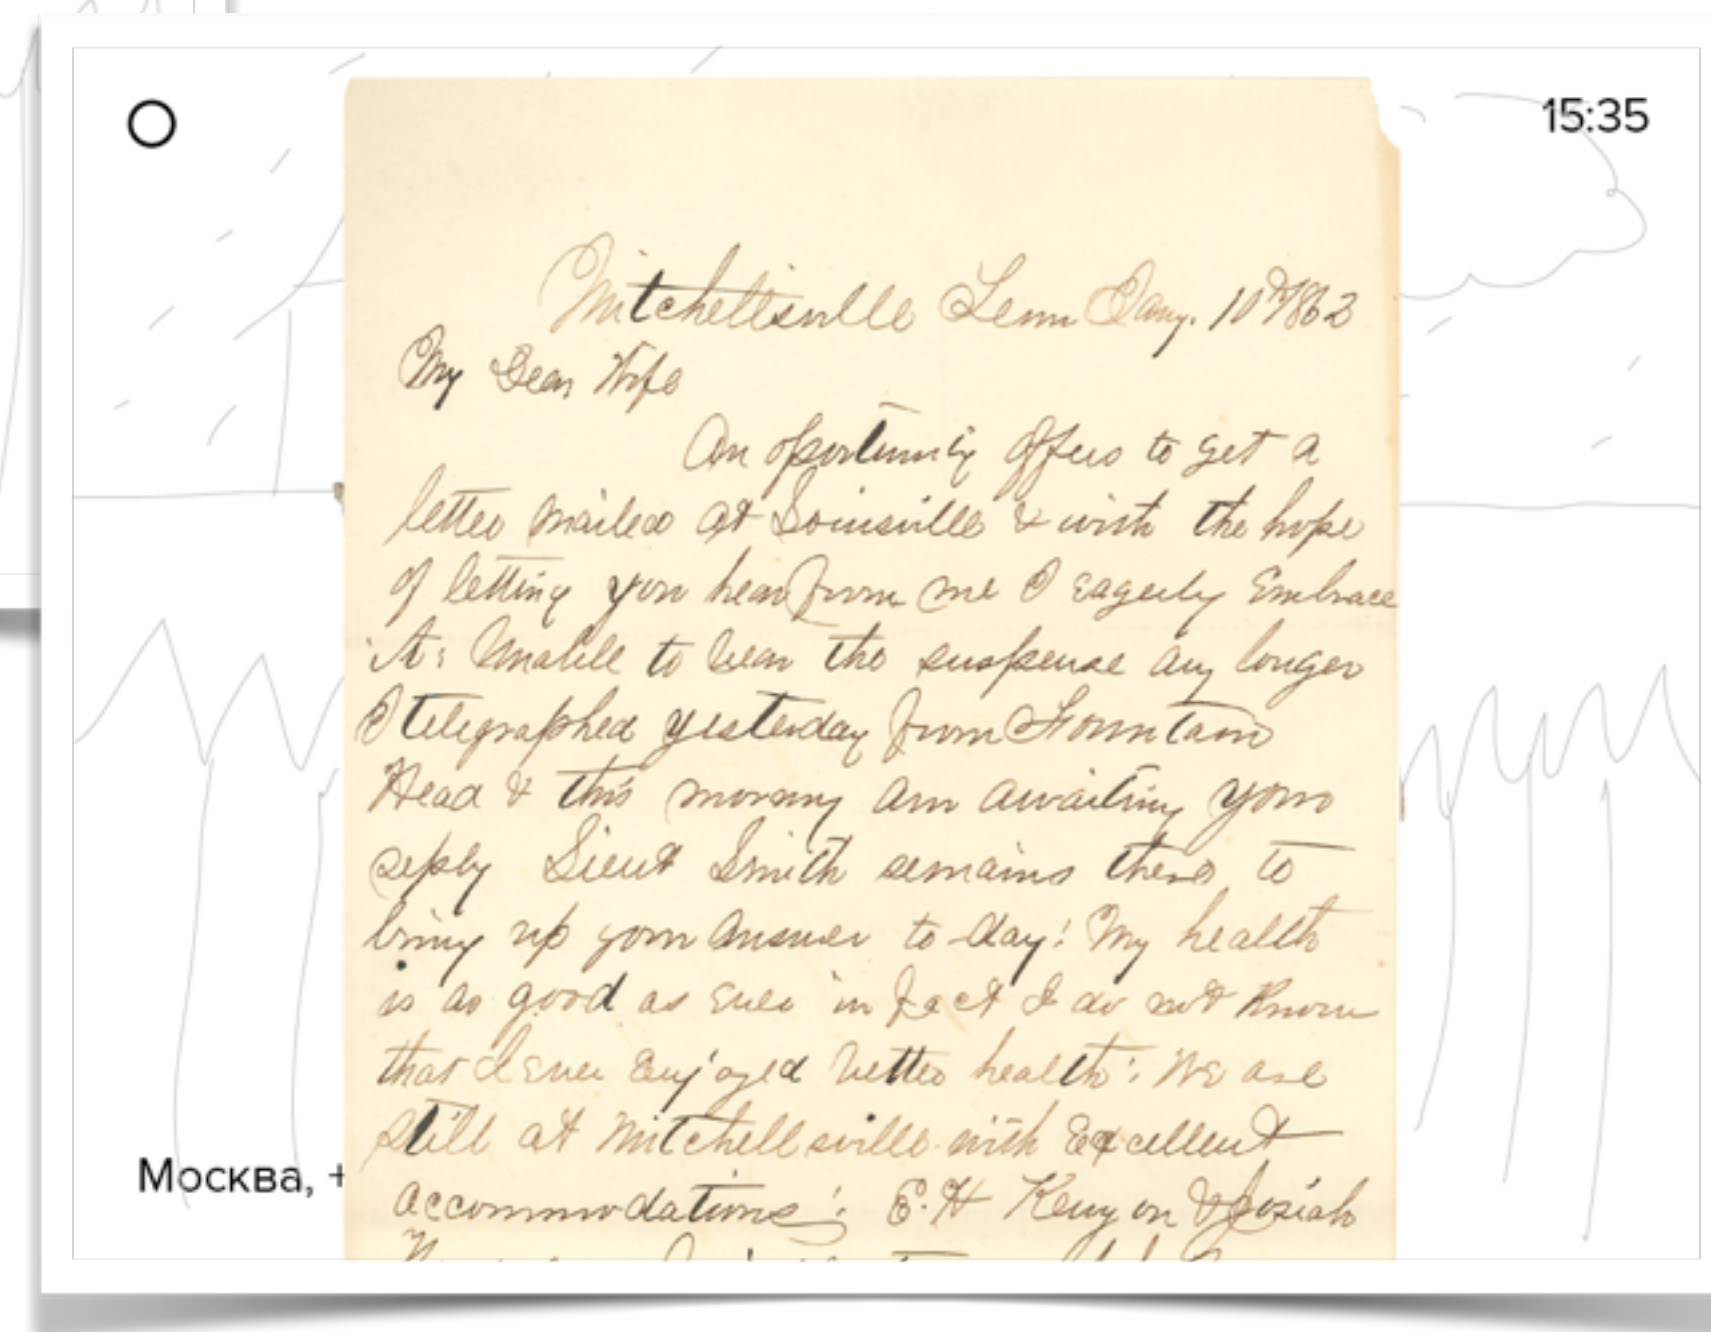 15:35
Mitchellsville Tenn Jany. 10th/862
My Dear Wife
An oportunity offers to get a
letter mailed at Louisville & with the hope
of letting you hear from me I eagerly Embrace
it: Unable to bear the suspense any longer
I telegraphed yesterday from Fountain
Head & this morning am awaiting your
reply Lieut Smith remains there to
bring up your Answer to-day: My health
is as good as ever in fact I do not know
that I ever enjoyed better health: We are
still at Mitchellsville with Excellent
Москва, +
accommodations: E. H Kenyon & Josiah